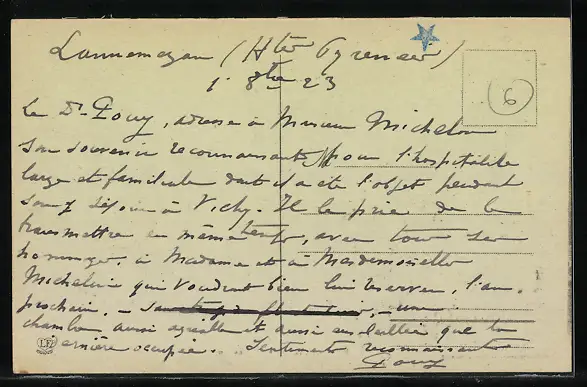 Lannemezan (Htes Pyrénées)
1er 8bre 23
6
Le Dr Pouy, adresse à Monsieur Michelin
son souvenir reconnaissant pour l'hospitalité
large et familiale dont il a été l'objet pendant
son séjour à Vichy. Il le prie de le
transmettre en même temps, avec tous ses
hommages, à Madame et à Mesdemoiselles
Michelin qui voudront bien lui réserver, l'an
prochain, - une
chambre aussi agréable et aussi ensoleillée que la
dernière occupée. Sentiments reconnaissants
Pouy